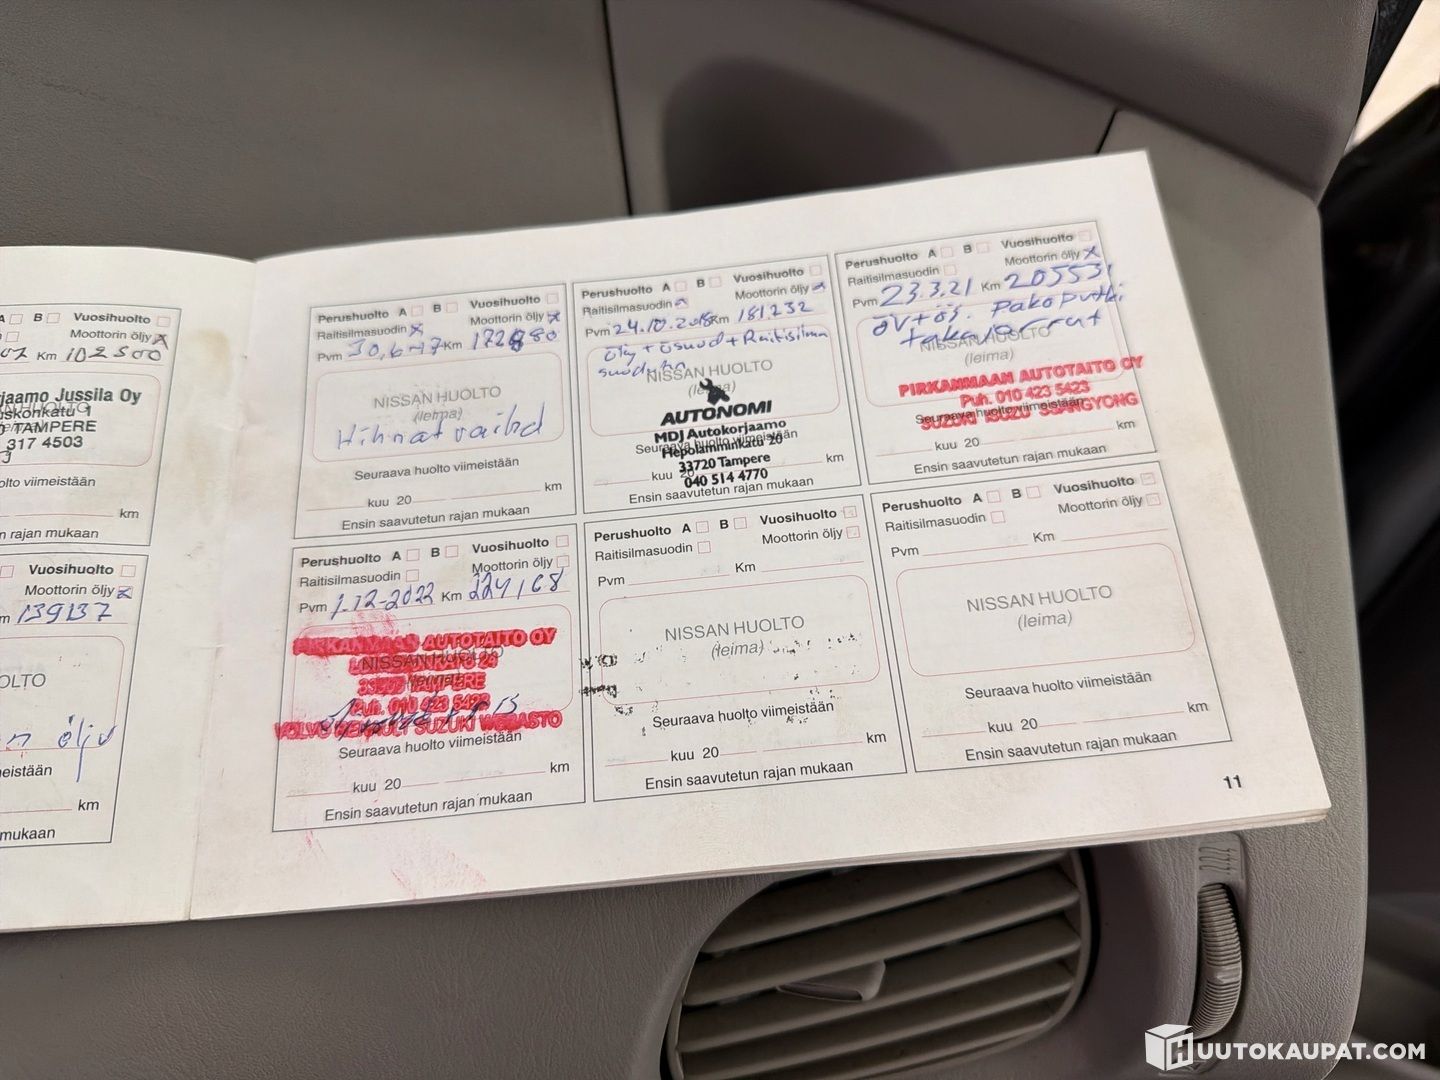 A B Vuosihuolto
Moottorin öljy x
Km 102500
Jussila Oy
TAMPERE
317 4503
km
rajan mukaan
Vuosihuolto
Moottorin öljy x
139137
öljy
km
mukaan
Perushuolto A B Vuosihuolto
Raitisilmasuodin x Moottorin öljy x
Pvm Km
NISSAN HUOLTO
(leima)
Hihnat vaihd
Seuraava huolto viimeistään
kuu 20 km
Ensin saavutetun rajan mukaan
Perushuolto A B Vuosihuolto
Raitisilmasuodin Moottorin öljy
Pvm 24.10.2018 Km 181232
öljy + ösuod + Raitisilma
NISSAN HUOLTO
(leima)
AUTONOMI
MDJ Autokorjaamo
Hepolamminkatu 20
Seuraava huolto viimeistään
33720 Tampere
kuu 20 km
040 514 4770
Ensin saavutetun rajan mukaan
Perushuolto A B Vuosihuolto
Raitisilmasuodin Moottorin öljy x
Pvm 23.3.21 Km 205531
öv+ös. pakoputki
NISSAN HUOLTO
(leima)
PIRKANMAAN AUTOTAITO OY
Puh. 010 423 5423
Seuraava huolto viimeistään
SUZUKI ISUZU SSANGYONG
kuu 20 km
Ensin saavutetun rajan mukaan
Perushuolto A B Vuosihuolto
Raitisilmasuodin Moottorin öljy
Pvm 1-12-2022 Km 224168
PIRKANMAAN AUTOTAITO OY
NISSAN HUOLTO
(leima)
TAMPERE
Puh. 010 423 5423
VOLVO RENAULT SUZUKI WEBASTO
Seuraava huolto viimeistään
kuu 20 km
Ensin saavutetun rajan mukaan
Perushuolto A B Vuosihuolto
Raitisilmasuodin Moottorin öljy
Pvm Km
NISSAN HUOLTO
(leima)
Seuraava huolto viimeistään
kuu 20 km
Ensin saavutetun rajan mukaan
Perushuolto A B Vuosihuolto
Raitisilmasuodin Moottorin öljy
Pvm Km
NISSAN HUOLTO
(leima)
Seuraava huolto viimeistään
kuu 20 km
Ensin saavutetun rajan mukaan
11
HUUTOKAUPAT.COM